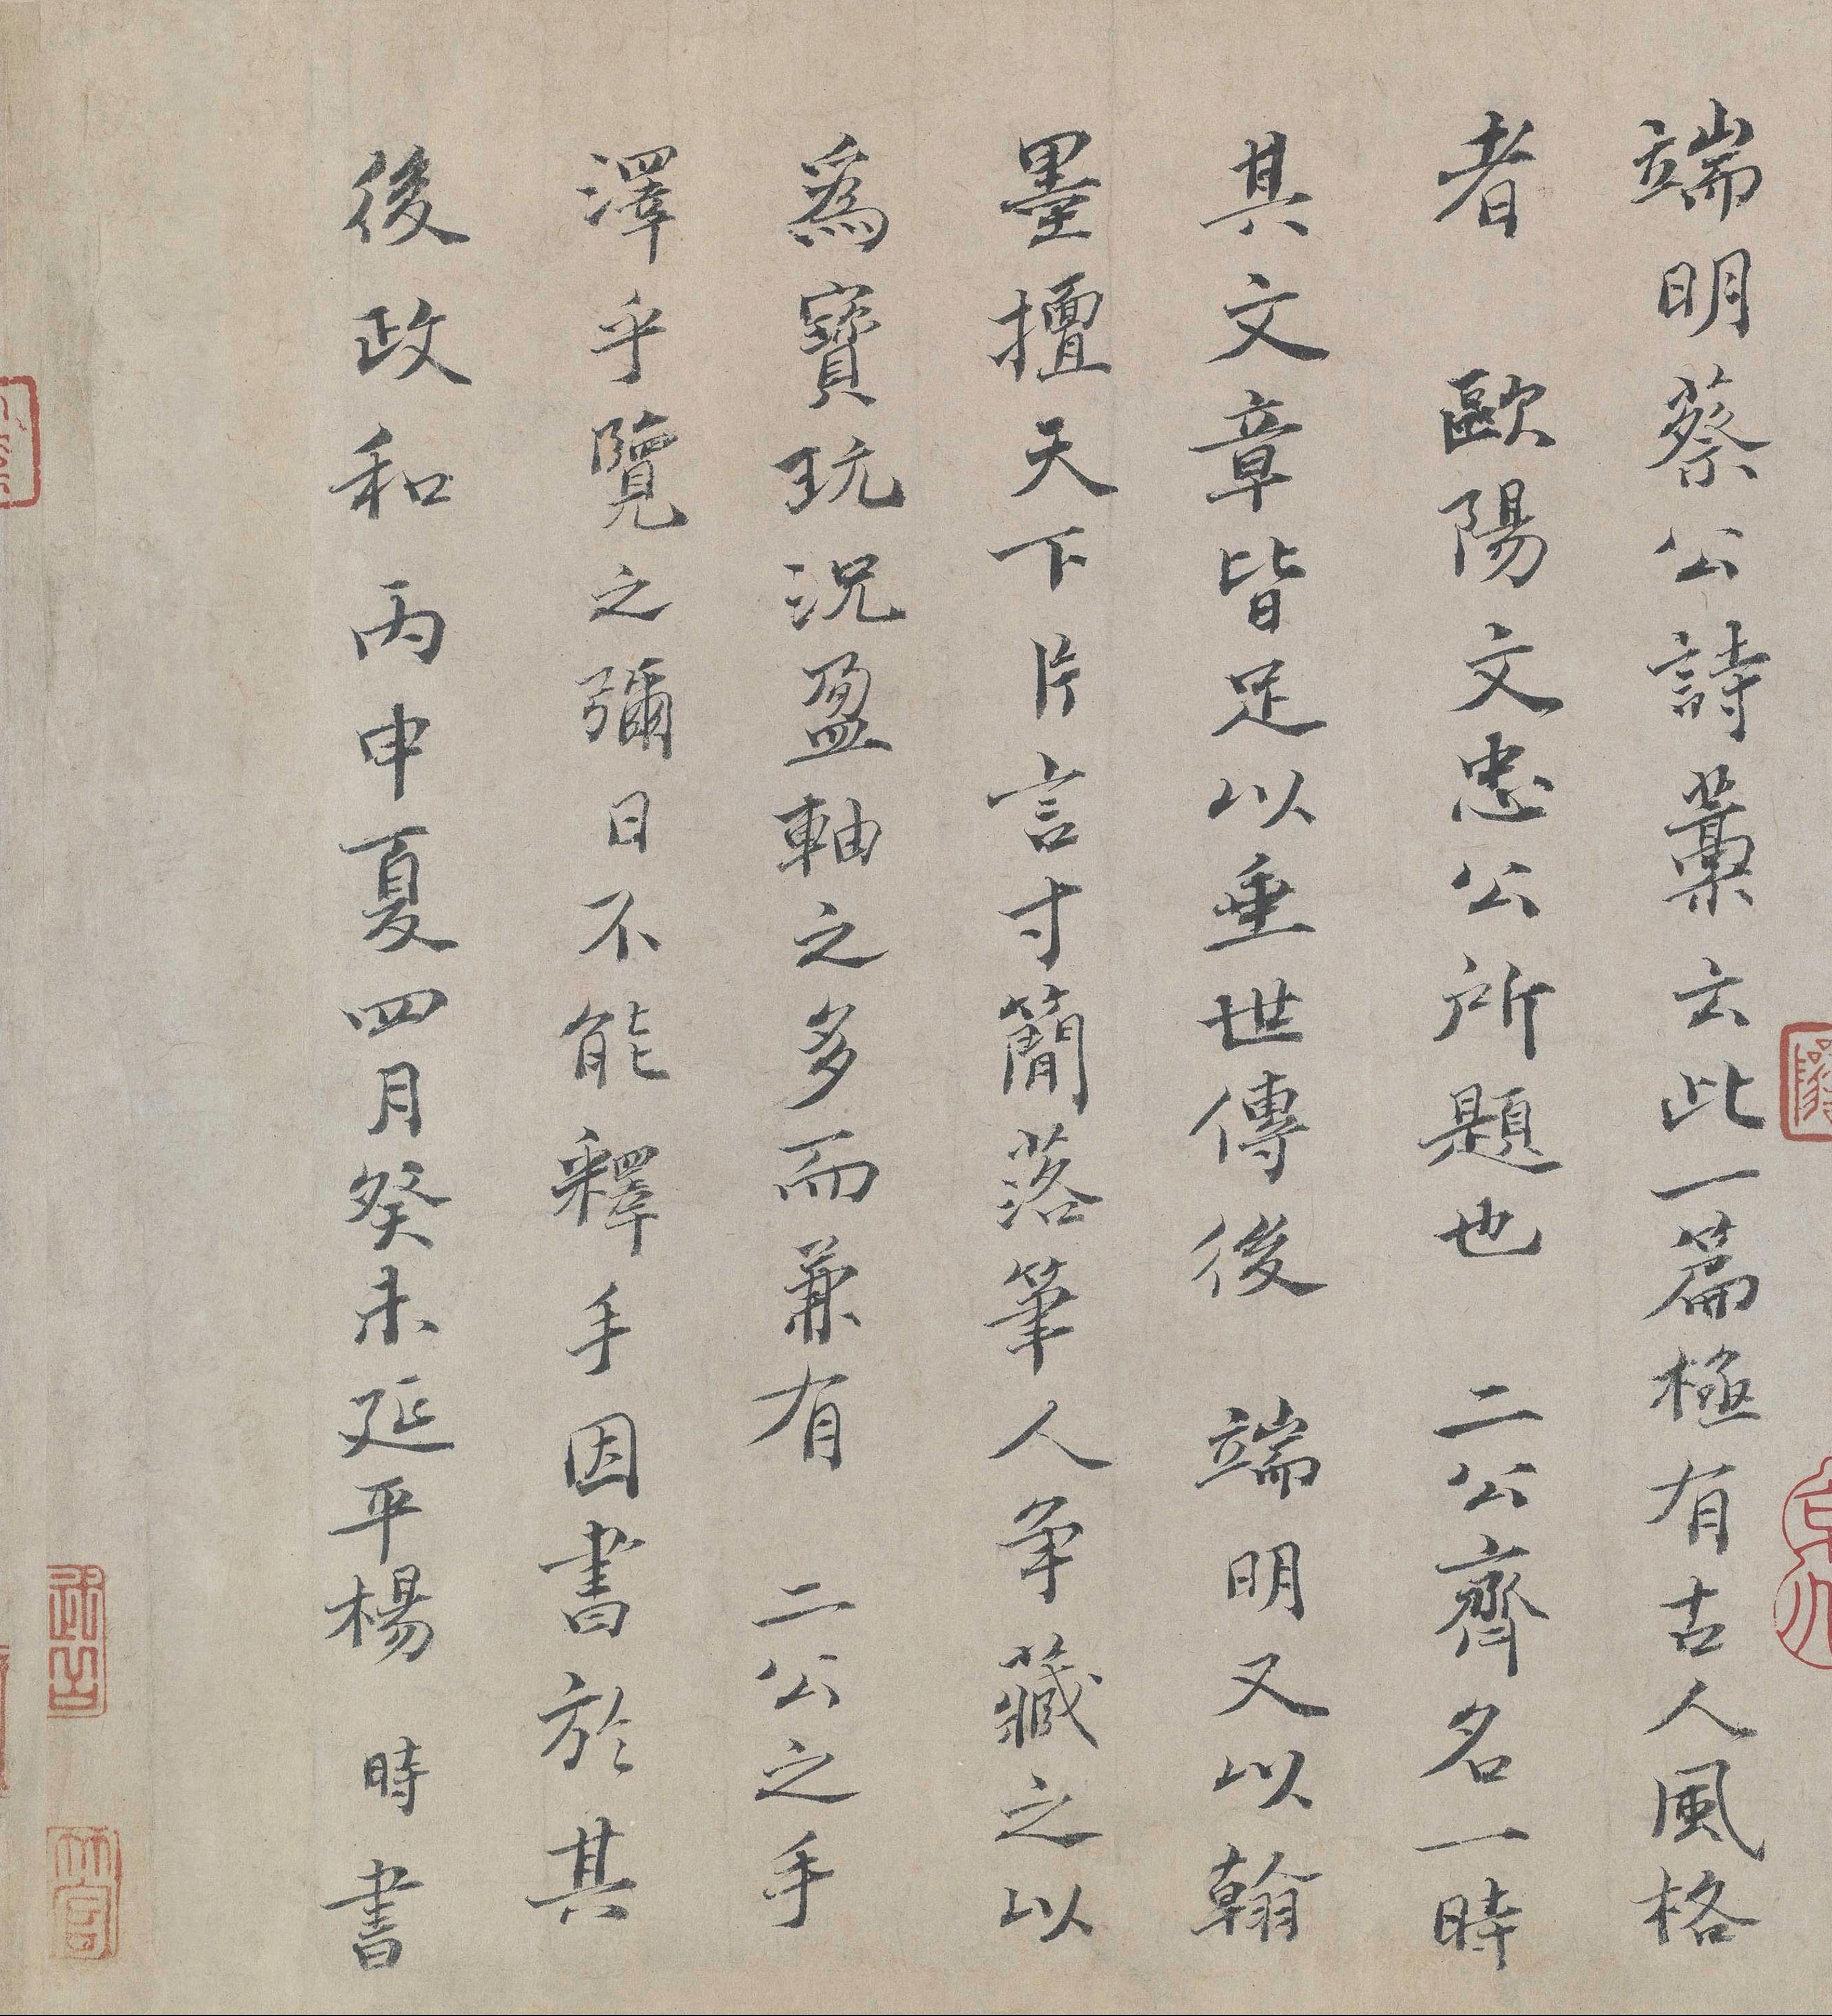 端明蔡公詩藁云此一篇極有古人風格
者 歐陽文忠公所題也 二公齊名一時
其文章皆足以垂世傳後 端明又以翰
墨擅天下片言寸簡落筆人爭藏之以
爲寶玩況盈軸之多而兼有 二公之手
澤乎覽之彌日不能釋手因書於其
後政和丙申夏四月癸未延平楊 時書